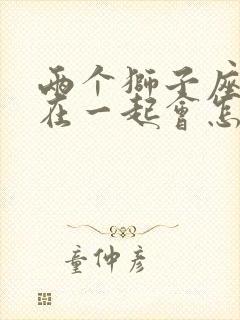 两个獅子座
在一起會怎
童仲彦